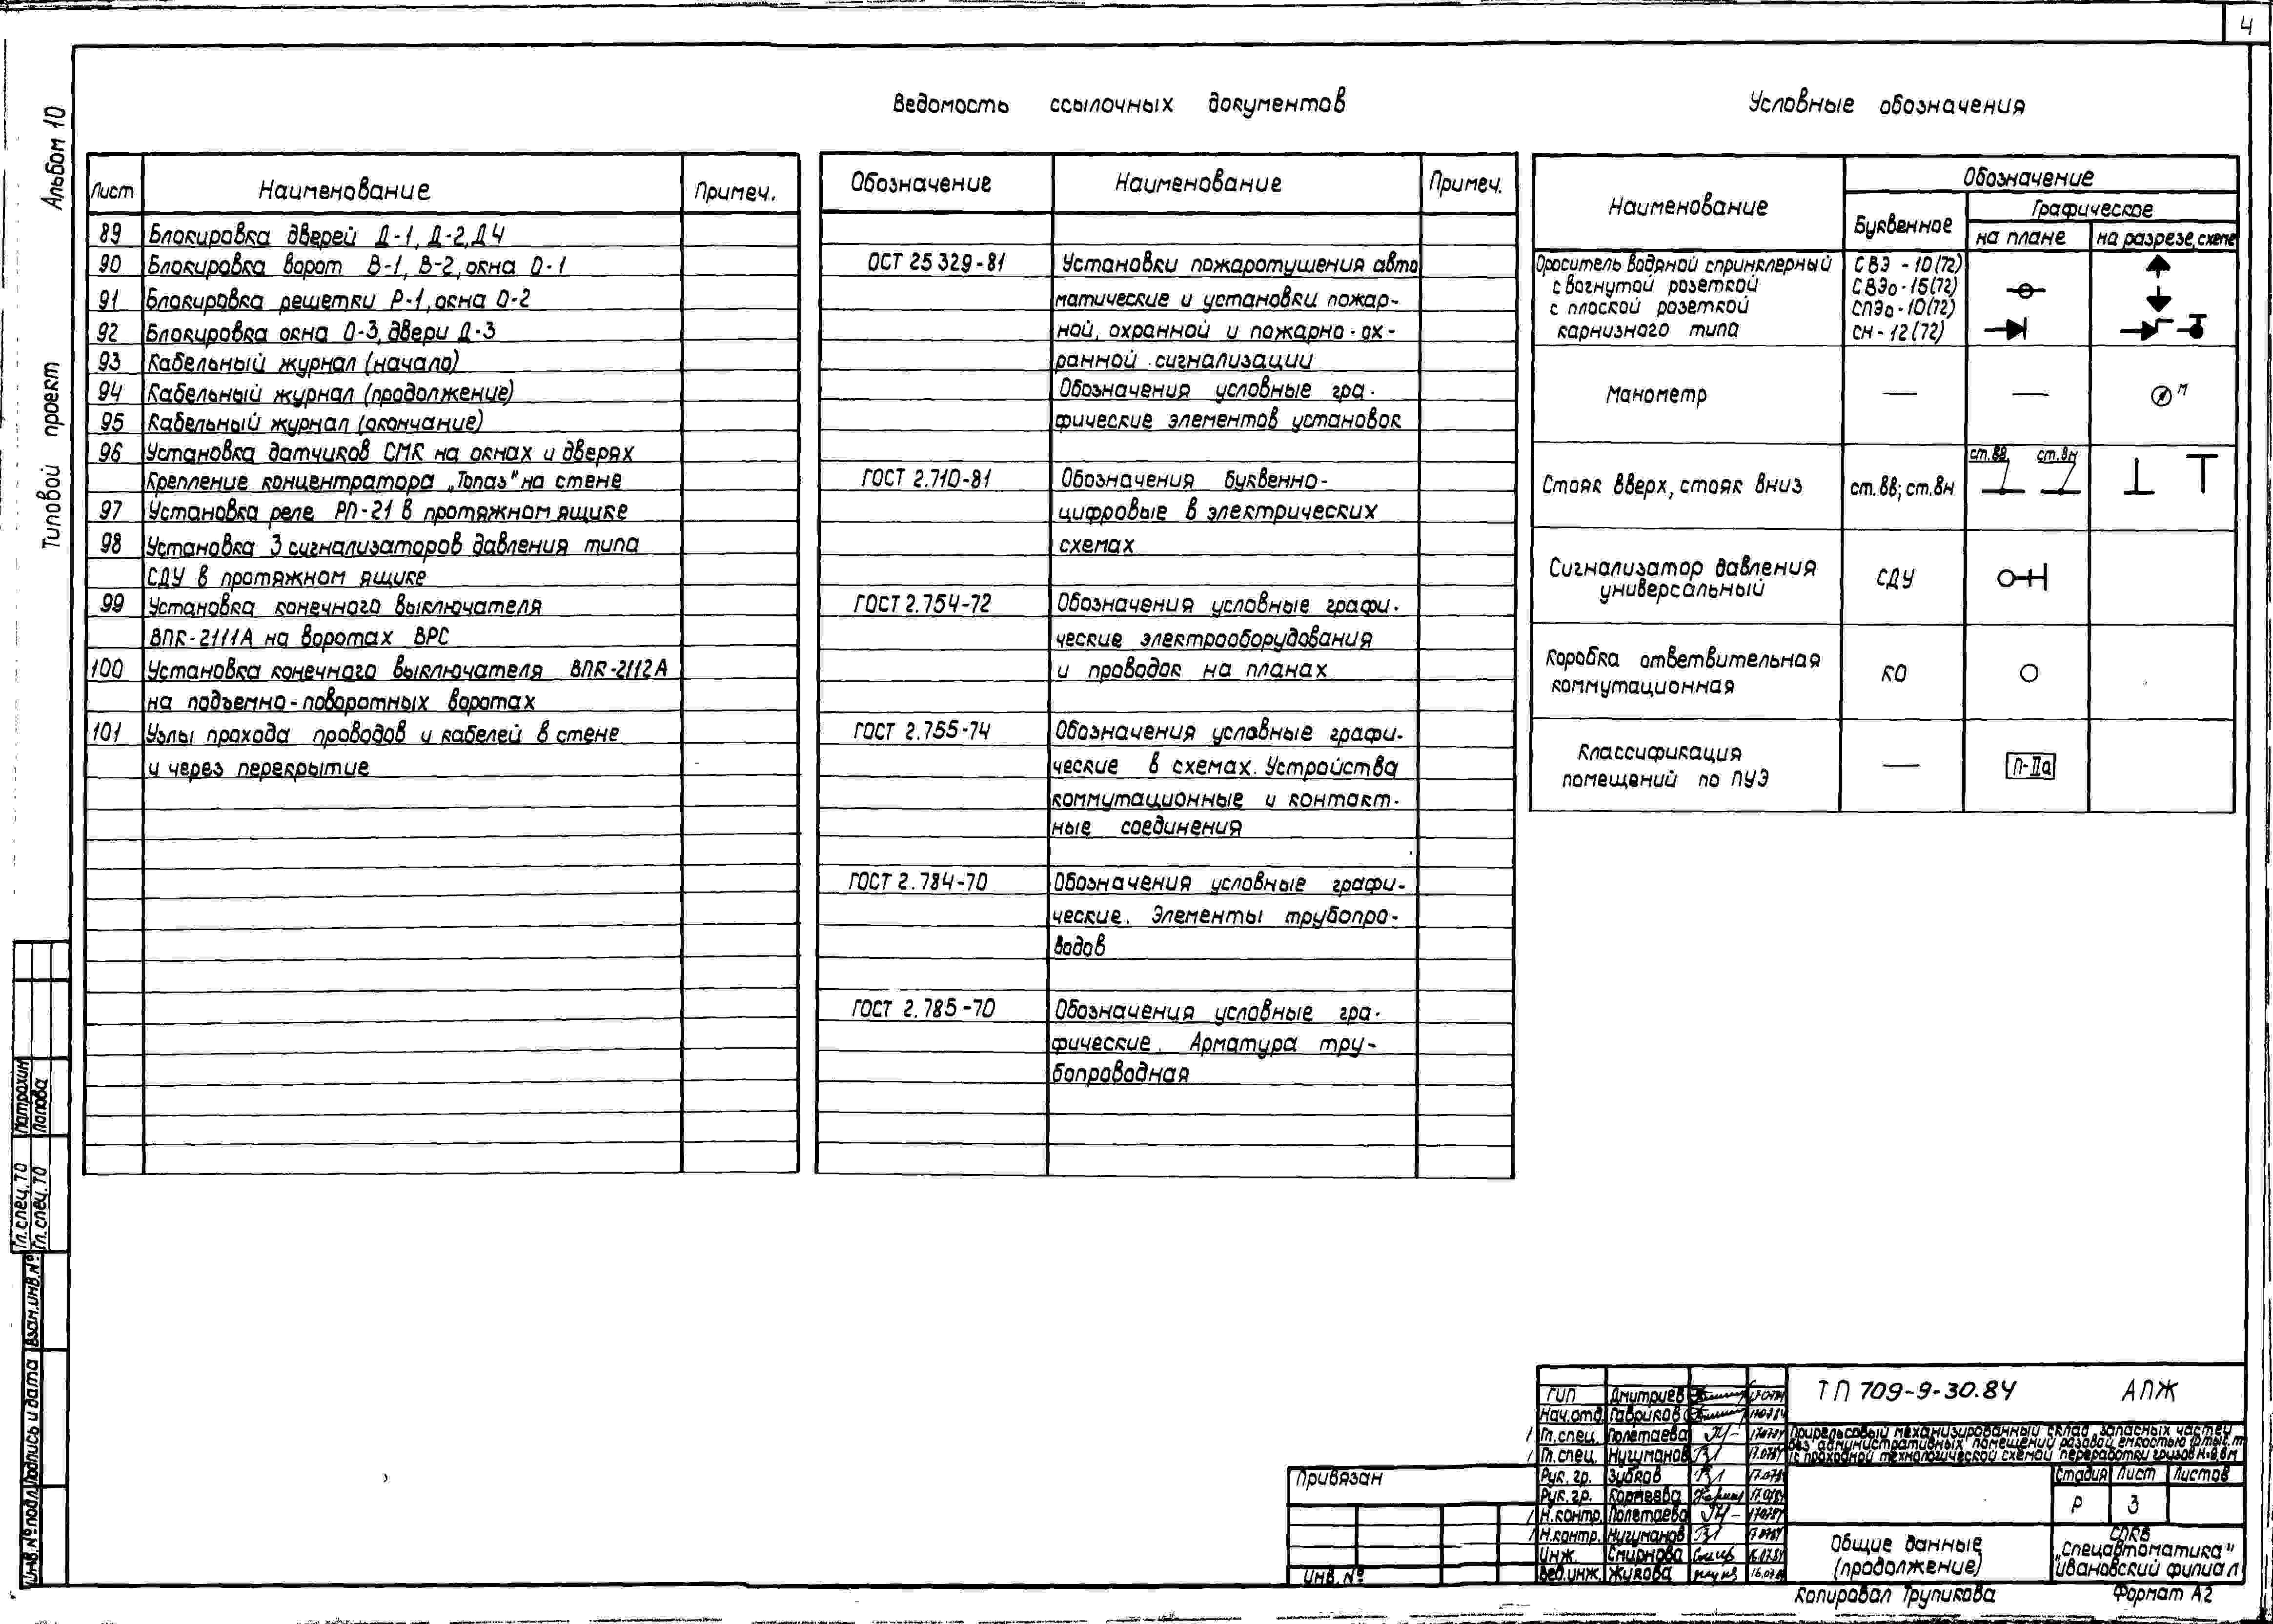 4
Альбом 10
Типовой проект
Лист Наименование Примеч.
89 Блокировка дверей Д-1, Д-2, Д4
90 Блокировка ворот В-1, В-2, окна О-1
91 Блокировка решетки Р-1, окна О-2
92 Блокировка окна О-3, двери Д-3
93 Кабельный журнал (начало)
94 Кабельный журнал (продолжение)
95 Кабельный журнал (окончание)
96 Установка датчиков СМК на окнах и дверях
Крепление концентратора „Топаз" на стене
97 Установка реле РП-21 в протяжном ящике
98 Установка 3 сигнализаторов давления типа
СДУ в протяжном ящике
99 Установка конечного выключателя
ВПК-2111А на воротах ВРС
100 Установка конечного выключателя ВПК-2112А
на подъемно-поворотных воротах
101 Узлы прохода проводов и кабелей в стене
и через перекрытие
Ведомость ссылочных документов
Обозначение Наименование Примеч.
ОСТ 25 329-81 Установки пожаротушения авто
матические и установки пожар-
ной, охранной и пожарно-ох-
ранной сигнализации
Обозначения условные гра-
фические элементов установок
ГОСТ 2.710-81 Обозначения буквенно-
цифровые в электрических
схемах
ГОСТ 2.754-72 Обозначения условные графи-
ческие электрооборудования
и проводок на планах
ГОСТ 2.755-74 Обозначения условные графи-
ческие в схемах. Устройства
коммутационные и контакт-
ные соединения
ГОСТ 2.784-70 Обозначения условные графи-
ческие. Элементы трубопро-
водов
ГОСТ 2.785-70 Обозначения условные гра-
фические. Арматура тру-
бопроводная
Условные обозначения
Наименование Обозначение
Буквенное Графическое
на плане на разрезе, схеме
Ороситель водяной спринклерный СВЭ-10(72)
с вогнутой розеткой СВЭо-15(72)
с плоской розеткой СПЭо-10(72)
карнизного типа СН-12(72)
Манометр — — М
ст.вв ст.вн
Стояк вверх, стояк вниз ст.вв; ст.вн
Сигнализатор давления
универсальный СДУ
Коробка ответвительная
коммутационная КО
Классификация
помещений по ПУЭ — П-IIа
Гл.спец.ТО Матрохин
Гл.спец.ТО Попова
Инв.№подл. Подпись и дата Взам.инв.№
Привязан
Инв.№
ГИП Дмитриев 17.07.84
Нач.отд. Гавриков 17.07.84
Гл.спец. Полетаева 17.07.84
Гл.спец. Нугуманов 17.07.84
Рук.гр. Зубков 17.07.84
Рук.гр. Корнеева 17.07.84
Н.контр. Полетаева 17.07.84
Н.контр. Нугуманов 17.07.84
Инж. Смирнова 16.07.84
Вед.инж. Жукова 16.07.84
ТП 709-9-30.84 АПЖ
Прирельсовый механизированный склад запасных частей
без административных помещений разовой емкостью тыс.т
с проходной технологической схемой переработки грузов
Стадия Лист Листов
Р 3
Общие данные
(продолжение)
СПКБ
„Спецавтоматика"
Ивановский филиал
Копировал Трупикова Формат А2